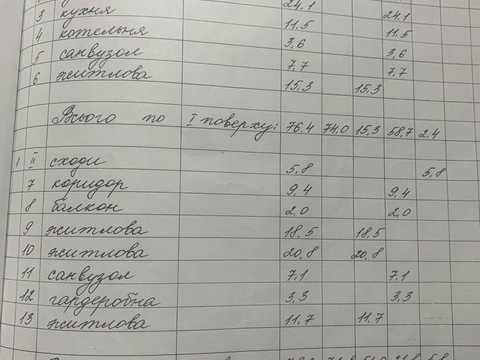 3 кухня 24,1 24,1
4 котельня 11,5 11,5
5 санвузол 3,6 3,6
6 житлова 7,7 7,7
15,3 15,3
Всього по I поверху: 76,4 74,0 15,3 58,7 2,4
1 II сходи 5,8 5,8
7 коридор 9,4 9,4
8 балкон 2,0 2,0
9 житлова 18,5 18,5
10 житлова 20,8 20,8
11 санвузол 7,1 7,1
12 гардеробна 3,3 3,3
13 житлова 11,7 11,7